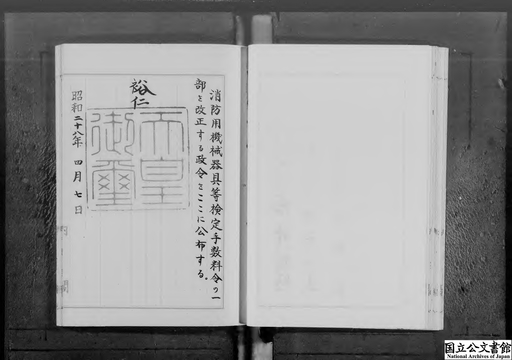 消防用機械器具等検定手数料令の一
部を改正する政令をここに公布する。
裕仁
天皇
御璽
昭和二十八年四月七日
国立公文書館
National Archives of Japan